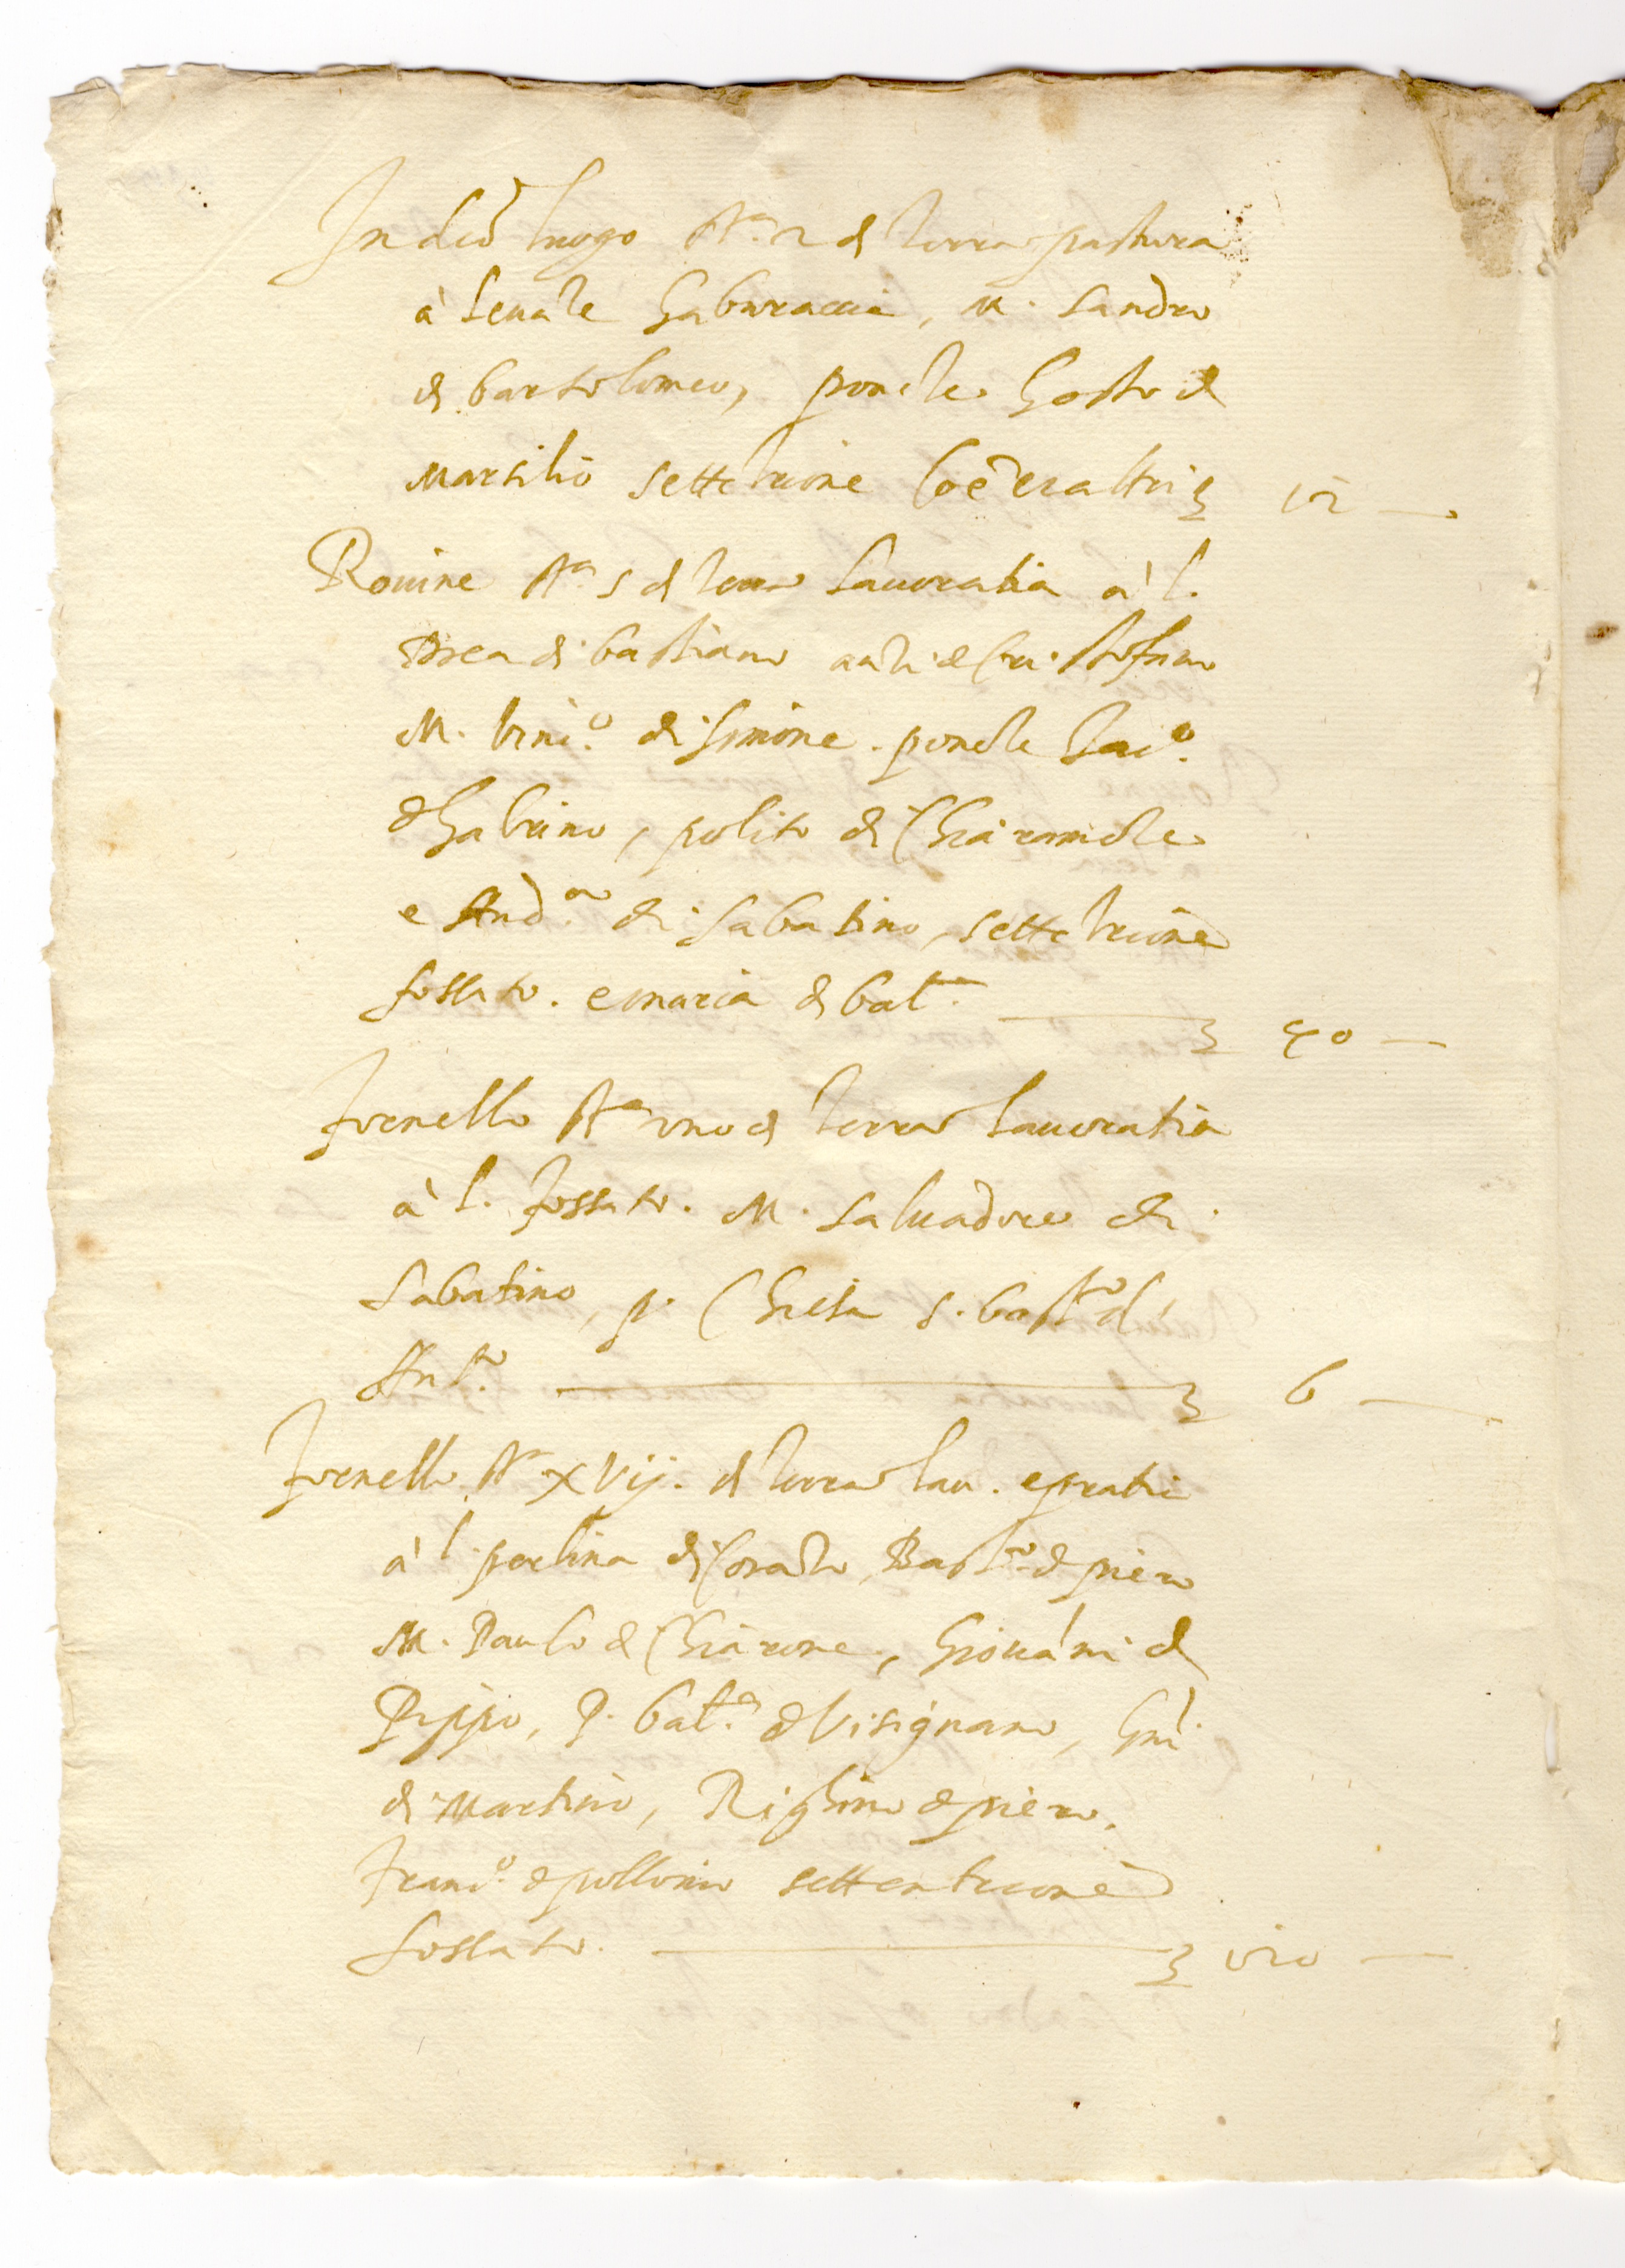 In d.o luogo st.a 2 di terra pastura
à levante Gaburaccia, M. Sandro
di bartolomeo, ponete Gosto di
Marsilio settetrione Coẽ et altri 12 —
Rovine st.a 5 di terra lavoratia à l.
Drea di bastiano
M. vinc.o di simone. ponete Iac.o
di Gabrino, polito di Chiaramote
e And.a di sabatino, settetrione
fossato. e maria di bat.a 40 —
fornello st.a uno di terra lavoratia
à l. fossato. M. salvadore di
sabatino, p. Chiesa s. bast.o di
Ant.o 6 —
fornello st.a XVij. di terra lav. e prati
à l. perlina di Corado, Bast.o di piero
M. Paulo di Chiarone, Giovãni di
Pippo, P. bat.a di Visignano, Gio:
di Martino, Righino di piero,
franc.o di pollonio settentrione
fossato. 120 —